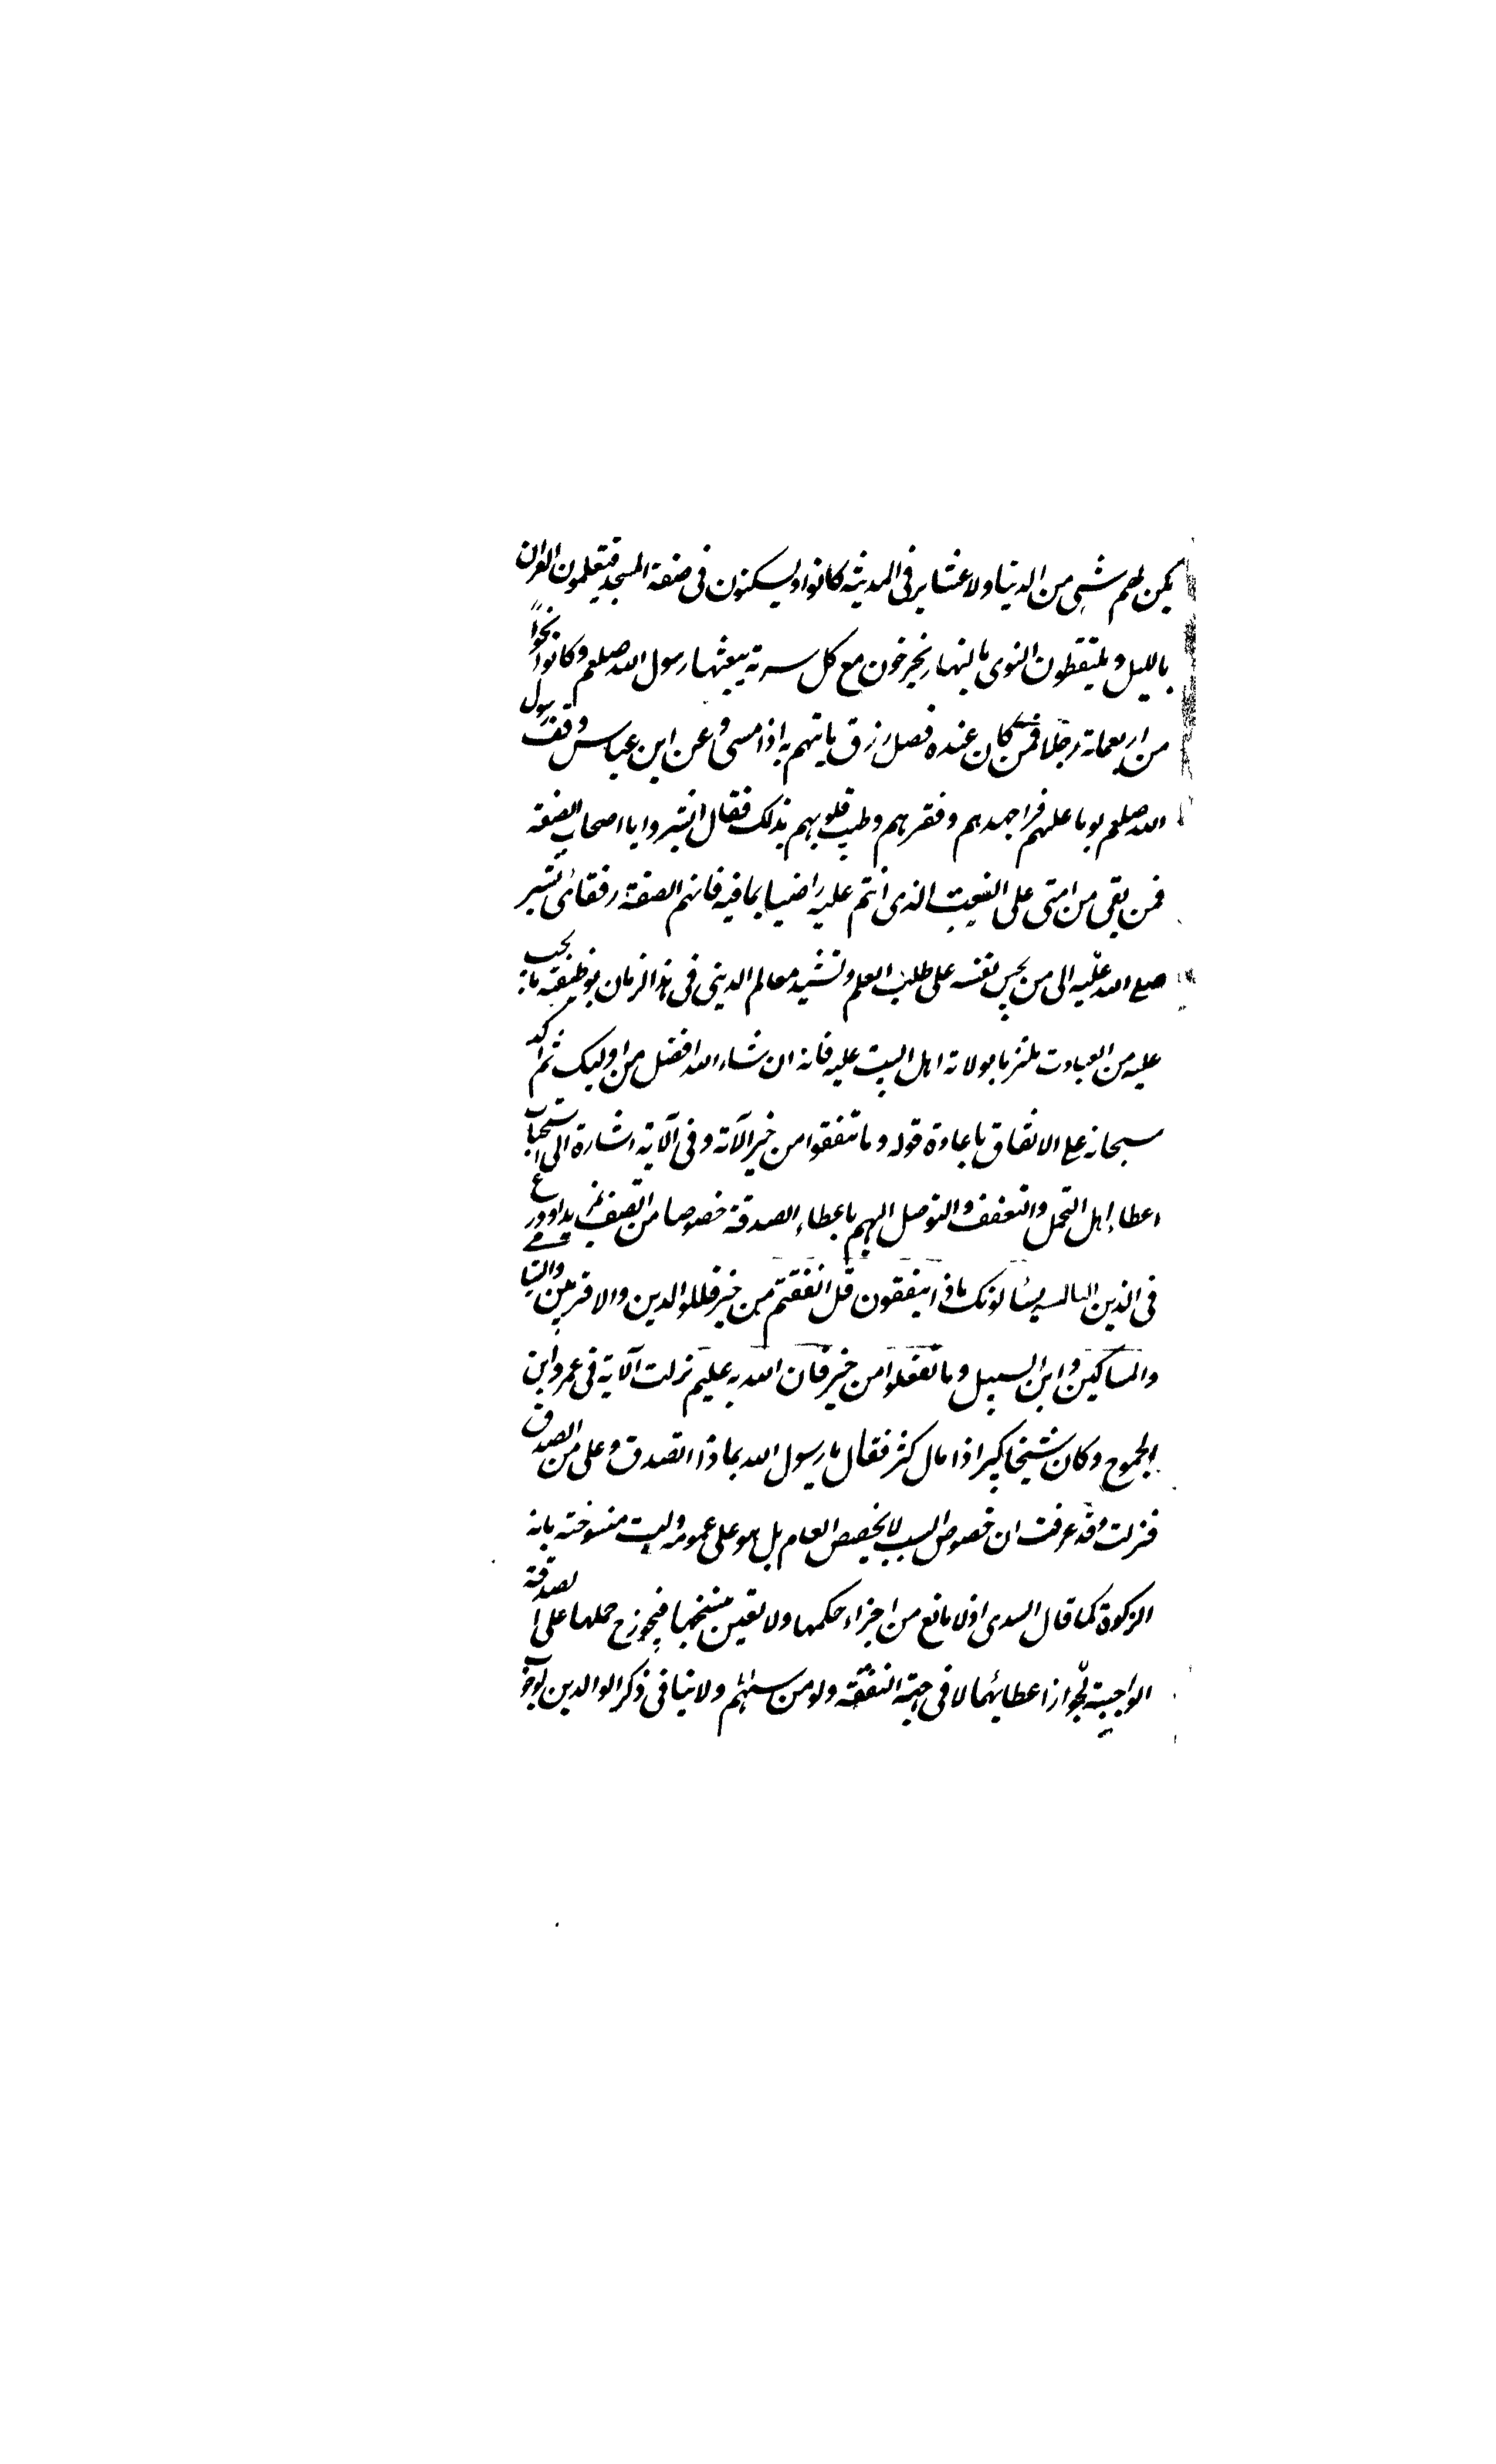 يكن لهم شىء من الدنيا ولا عشاير فى المدينة كانوا ويسكنون فى صفة المسجد فيتعلمون القران
بالليل ويلتقطون النوى بالنهار يخرخون مع كل سرية يبعثها رسول الله صلعم وكانوا نحوا
من اربعمائة رجلا فمن كان عنده فضل رزق ياتيهم به اذا امسى وعن ابن عباس وقف رسول
الله صلعم يوما عليهم فراجهدهم وفقرهم وطيب قلوبهم بذلك فقال ابشروا يا اصحاب الصفة
فمن بقى من امتى على النعت الذى انتم عليه راضيا بما فيه فانهم الصفة رفقائى يشير
صلى الله عليه الى من يحبس نفسه على طلب العلم وتشييد معالم الدينى فى هذا الزمان بوظيفته ما يجب
عليه من العبادت ملتزما بولاية اهل البيت عليه فانه ان شاء الله افضل من اوليك ثم اكد
سبحانه على الانفاق باعادة قوله وما تنفقوا من خير الآية وفى الآية اشارة الى استحباب
اعطاء اهل التحمل والتعفف والتوصل اليهم باعطاء الصدقة خصوصا من اتصف
فى الذين الثالث يسالونك ماذا ينفقون قل انفقتم من خير فللوالدين والاقربين واليتا
والمساكين وابن السبيل وما تفعلوا من خير فان الله به عليم نزلت الآية فى عمرو ابن
الجموح وكان شيخا كبيرا ذا مال كثر فقال يا رسول الله بماذا اتصدق وعلى من اتصدق
فنزلت وقد عرفت ان خصوص السبب لا يخصص العام بل هو على عمومه وليست منسوخته باية
الزكوة كما قال السدى اذ لا مانع من اجزاء حكمها ولا تعين منسخها فيجوز ح حملها على الصدقة
الواجبة لجواز اعطائهما لا فى جهة النفقة ولو من سهم ولا ينافى ذكر الوالدين لوجوب